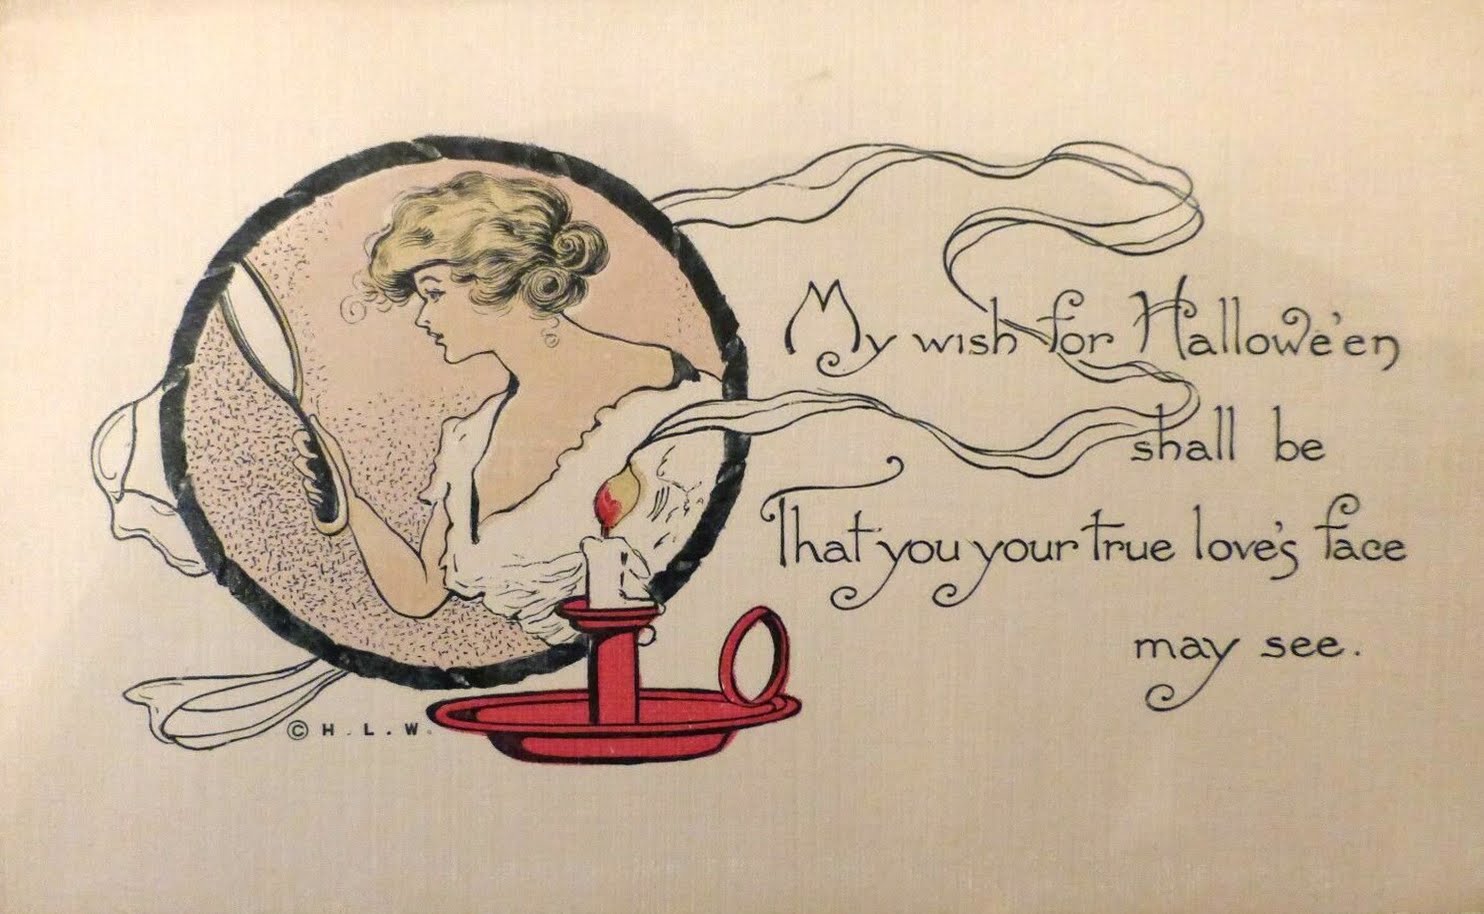 My wish for Hallowe'en
shall be
That you your true love's face
may see.
© H. L. W.